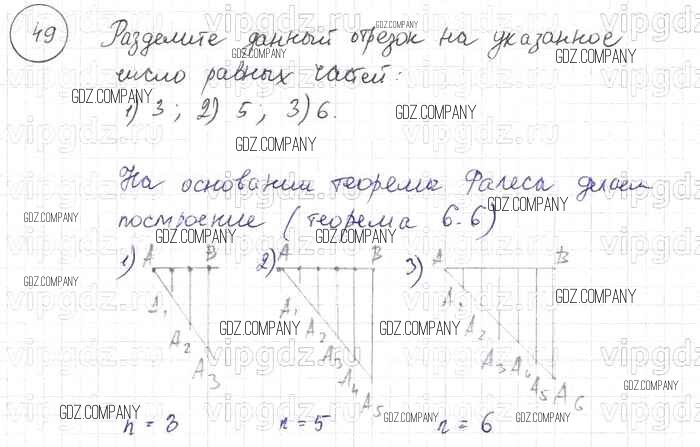 49 Разделите данный отрезок на указанное
число равных частей:
1) 3; 2) 5; 3) 6.
На основании теоремы Фалеса делаем
построение (теорема 6.6)
1) A B 2) A B 3) A B
A1 A2 A3
A1 A2 A3 A4 A5
A1 A2 A3 A4 A5 A6
n = 3 n = 5 n = 6
GDZ.COMPANY
vipgdz.ru